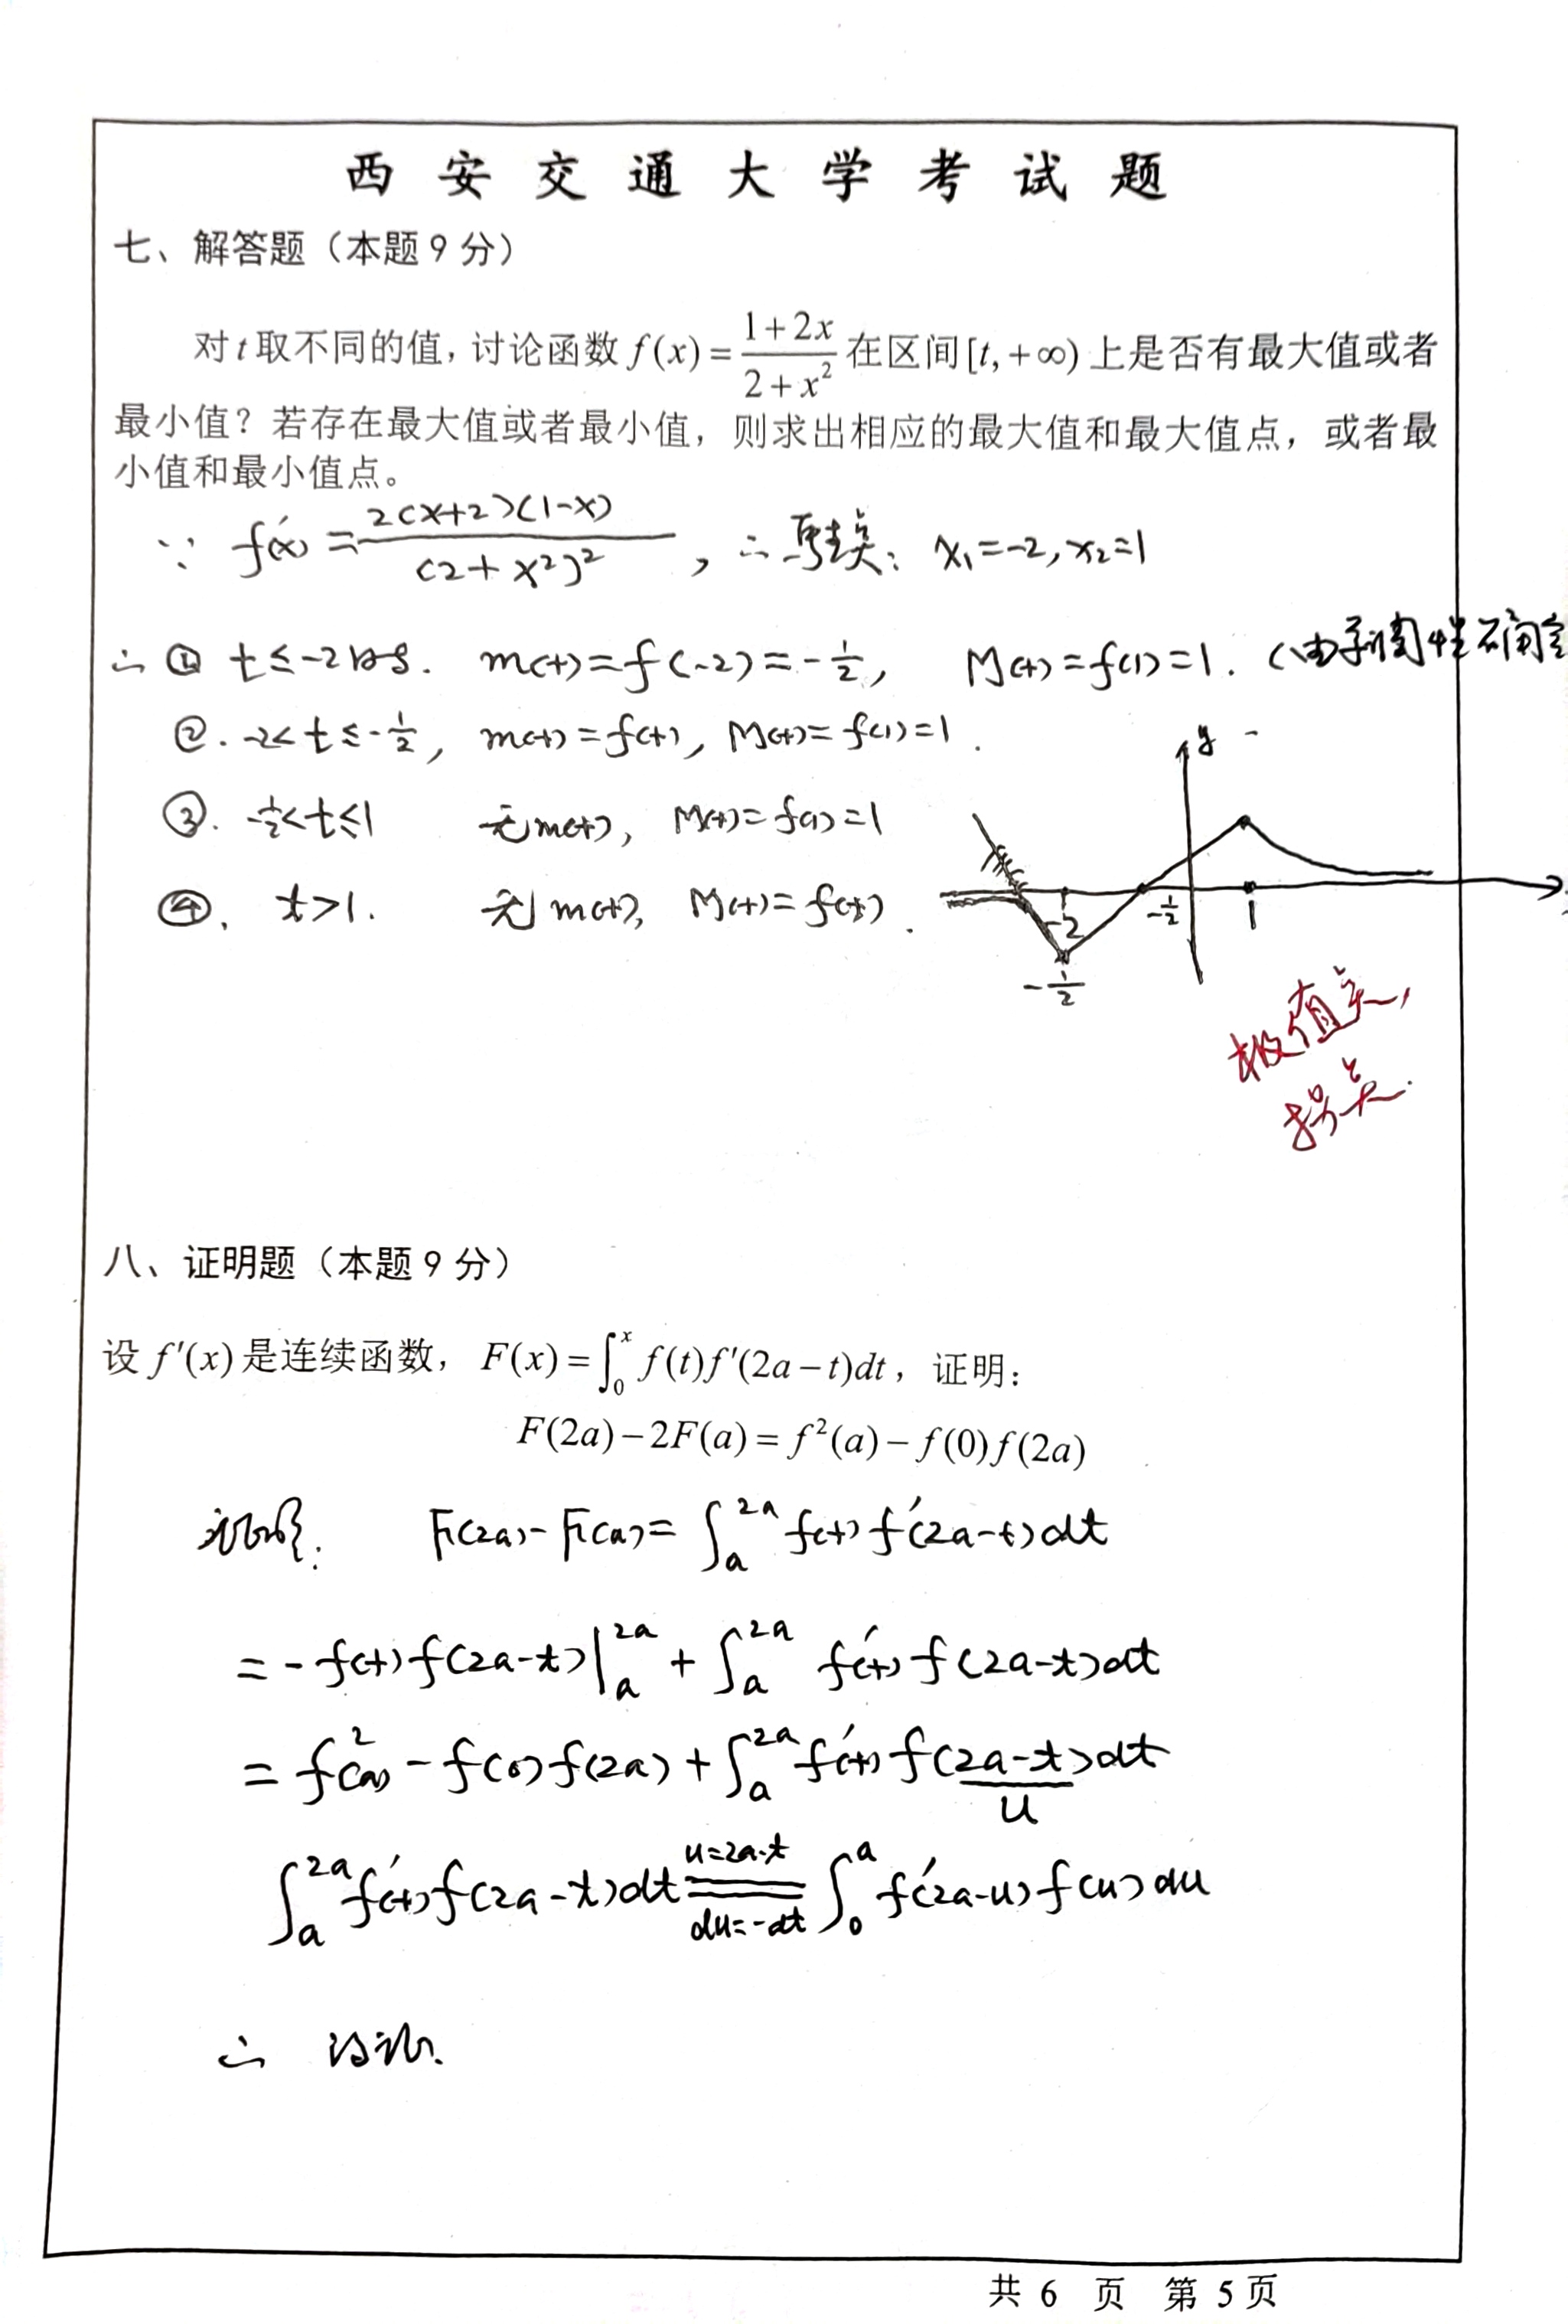 西安交通大学考试题
七、解答题（本题9分）
对t取不同的值，讨论函数f(x)=\frac{1+2x}{2+x²}在区间[t,+∞)上是否有最大值或者
最小值？若存在最大值或者最小值，则求出相应的最大值和最大值点，或者最
小值和最小值点。
∵ f'(x)=\frac{2(x+2)(1-x)}{(2+x²)²}，∴驻点：x₁=-2, x₂=1
∴ ① t≤-2时. m(t)=f(-2)=-\frac{1}{2}, M(t)=f(1)=1. (由单调性确定
②. -2<t≤-\frac{1}{2}, m(t)=f(t), M(t)=f(1)=1.
③. -\frac{1}{2}<t≤1 无m(t), M(t)=f(1)=1
④. t>1. 无m(t), M(t)=f(t).
y
-2 -\frac{1}{2} 1
-\frac{1}{2}
极值点,
拐点.
八、证明题（本题9分）
设f'(x)是连续函数，F(x)=∫₀ˣ f(t)f'(2a-t)dt，证明：
F(2a)-2F(a)=f²(a)-f(0)f(2a)
证明: F(2a)-F(a)=∫_a^{2a} f(t)f'(2a-t)dt
=-f(t)f(2a-t)|_a^{2a}+∫_a^{2a} f'(t)f(2a-t)dt
=f²(a)-f(0)f(2a)+∫_a^{2a} f'(t)f(2a-t)dt
u
∫_a^{2a} f'(t)f(2a-t)dt \xlongequal[du=-dt]{u=2a-t} ∫_0^a f'(2a-u)f(u)du
∴ 得证.
共 6 页 第 5 页